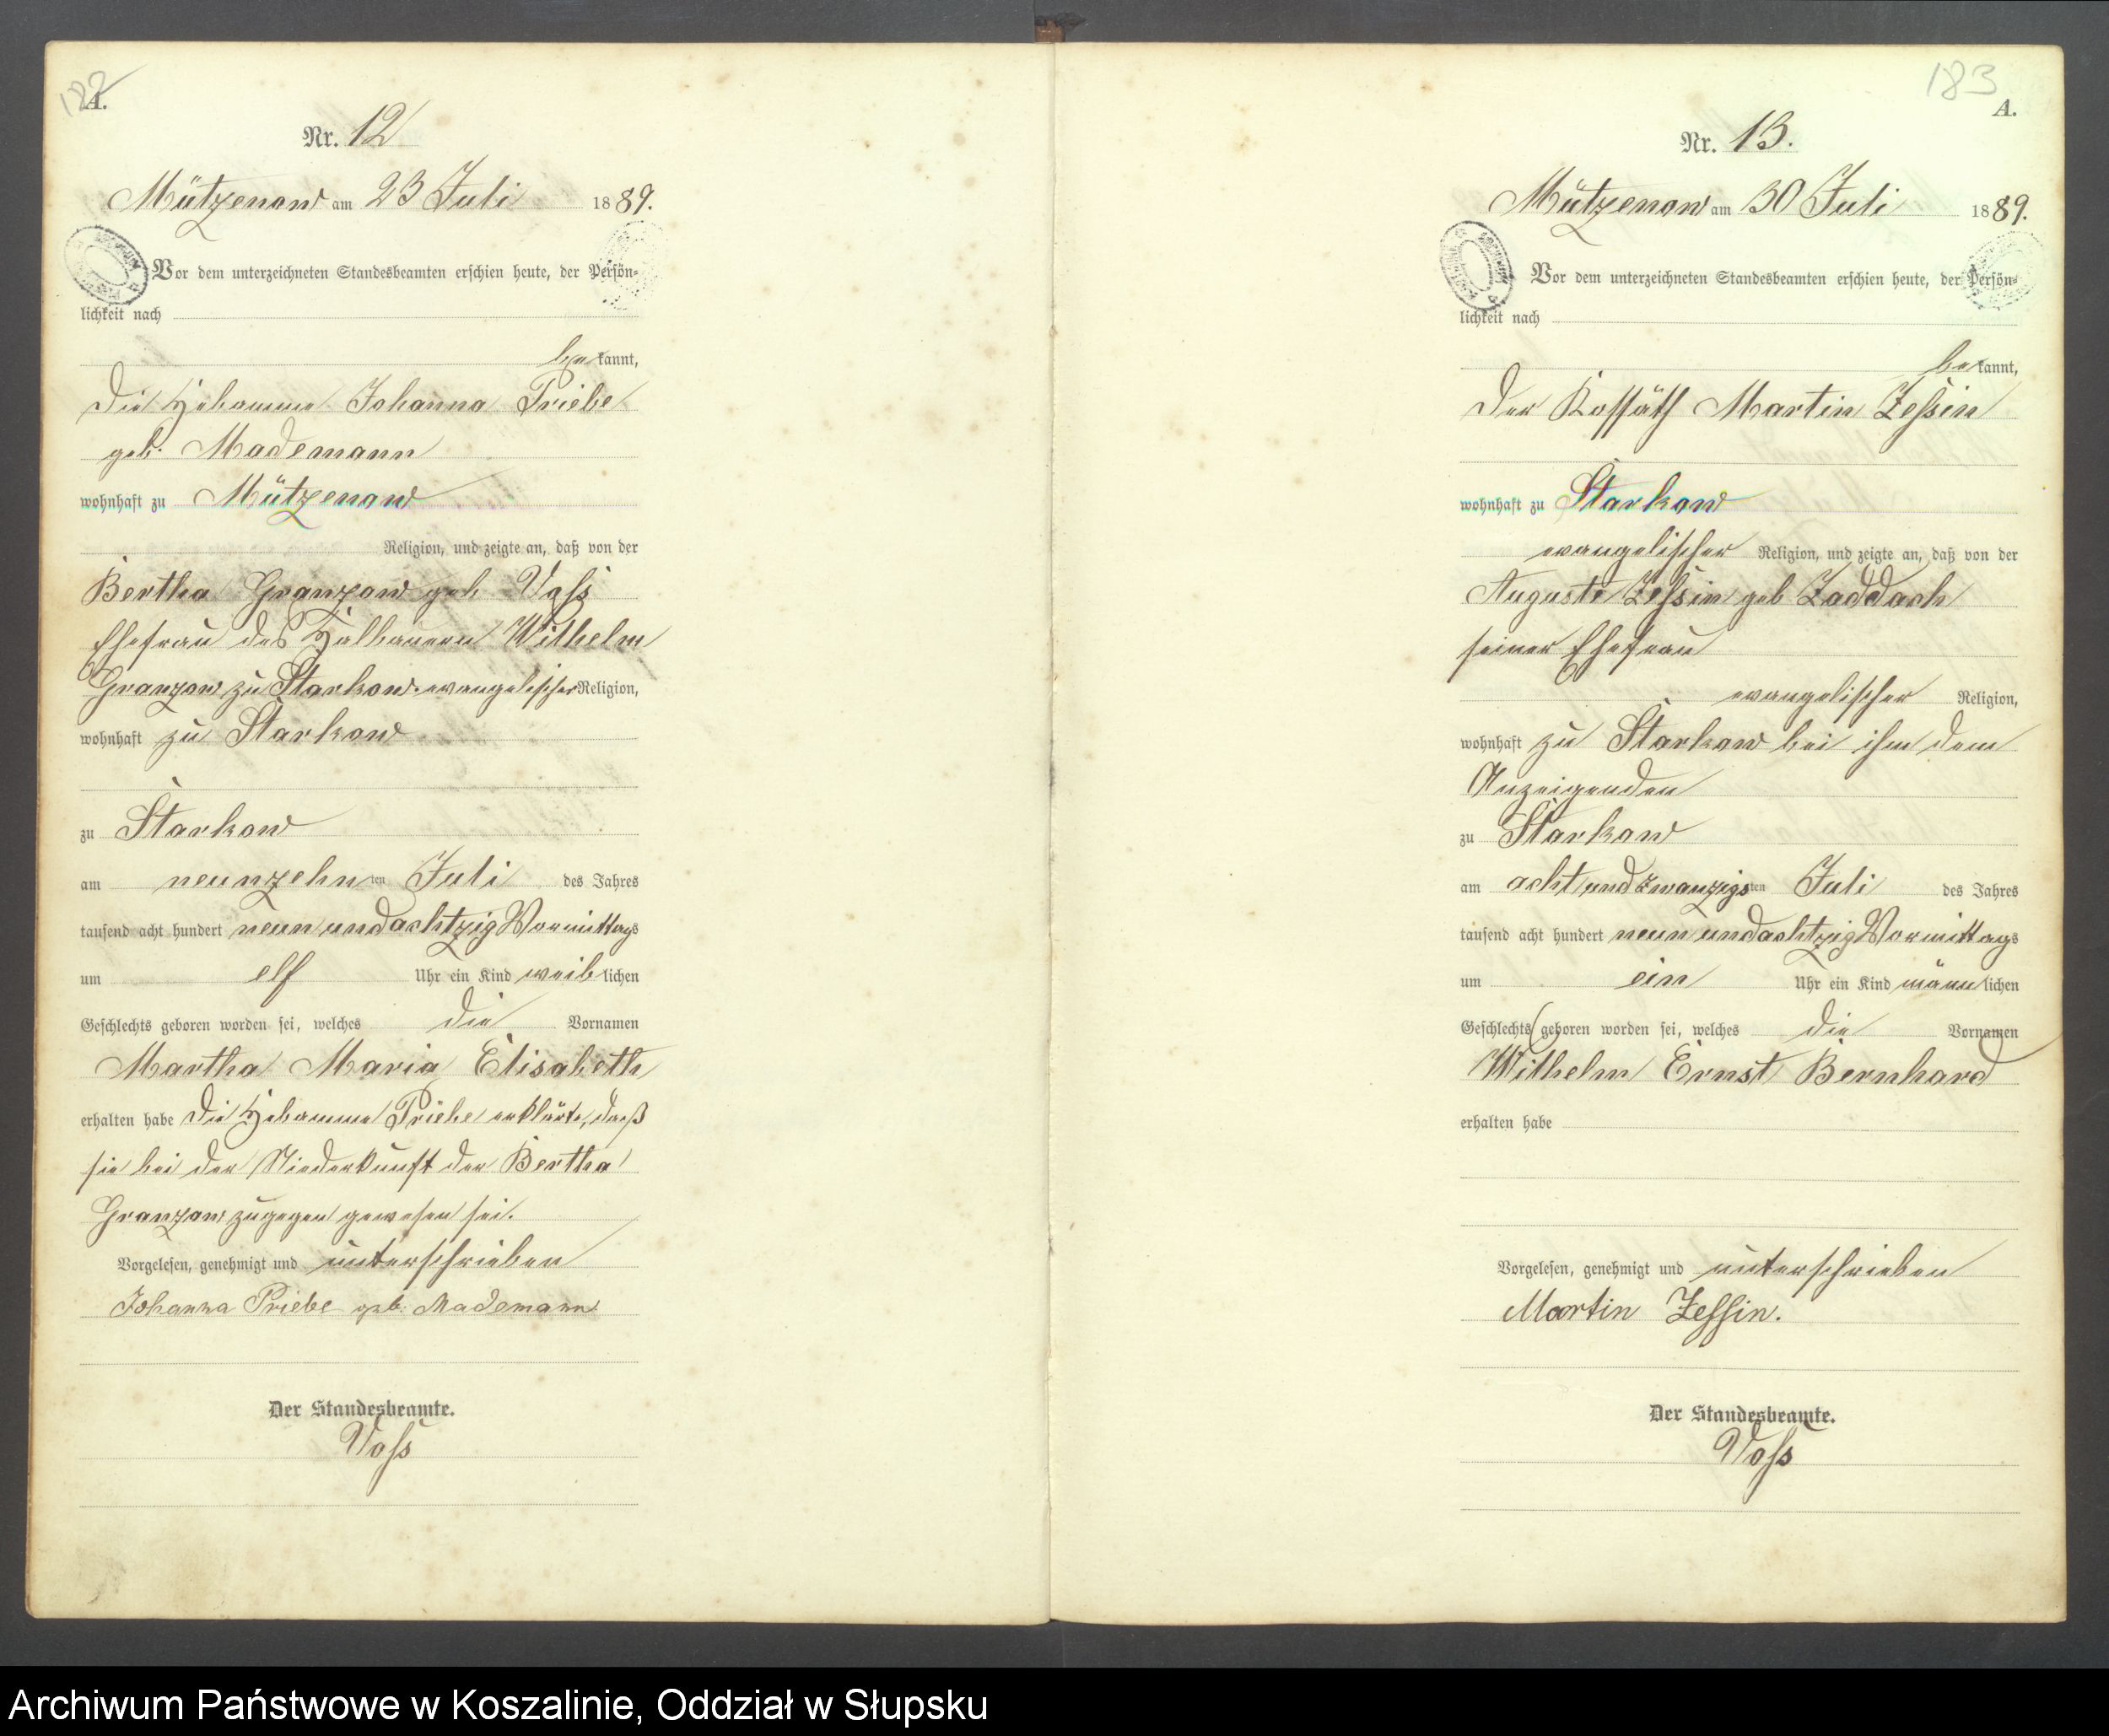 182
A.
Nr. 12
Mützenow am 23 Juli 1889.
Vor dem unterzeichneten Standesbeamten erschien heute, der Persön-
lichkeit nach
bekannt,
die Hebamme Johanna Priebe
geb. Mademann
wohnhaft zu Mützenow
Religion, und zeigte an, daß von der
Bertha Granzow geb. Voss
Ehefrau des Halbauern Wilhelm
Granzow zu Starkow evangelischer Religion,
wohnhaft zu Starkow
zu Starkow
am neunzehn ten Juli des Jahres
tausend acht hundert neun und achtzig Vormittags
um elf Uhr ein Kind weiblichen
Geschlechts geboren worden sei, welches die Vornamen
Martha Maria Elisabeth
erhalten habe die Hebamme Priebe erklärte, daß
sie bei der Niederkunft der Bertha
Granzow zugegen gewesen sei.
Vorgelesen, genehmigt und unterschrieben
Johanna Priebe geb. Mademann
Der Standesbeamte.
Voss
183
A.
Nr. 13.
Mützenow am 30 Juli 1889.
Vor dem unterzeichneten Standesbeamten erschien heute, der Persön-
lichkeit nach
bekannt,
der Kossäth Martin Zessin
wohnhaft zu Starkow
evangelischer Religion, und zeigte an, daß von der
Auguste Zessin geb Zaddach
seiner Ehefrau
evangelischer Religion,
wohnhaft zu Starkow bei ihm dem
Anzeigenden
zu Starkow
am acht und zwanzigsten Juli des Jahres
tausend acht hundert neun und achtzig Vormittags
um ein Uhr ein Kind männlichen
Geschlechts geboren worden sei, welches die Vornamen
Wilhelm Ernst Bernhard
erhalten habe
Vorgelesen, genehmigt und unterschrieben
Martin Zessin.
Der Standesbeamte.
Voss
Archiwum Państwowe w Koszalinie, Oddział w Słupsku